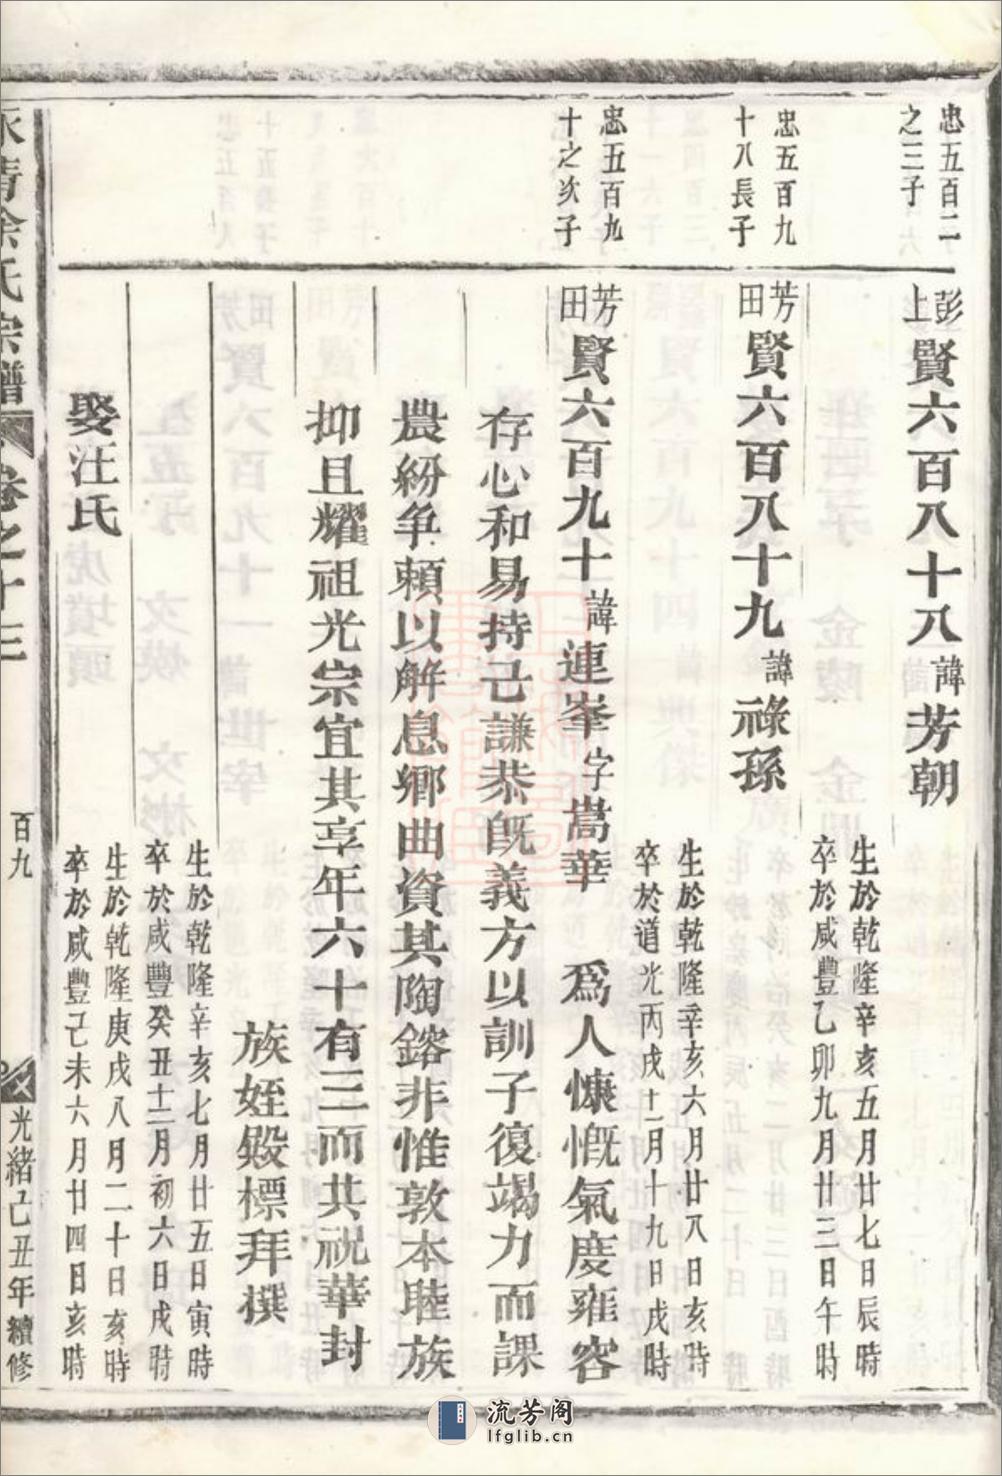 忠五百二
之三子
彭
上
賢六百八十八諱芳朝
生於乾隆辛亥五月廿七日辰時
卒於咸豐乙卯九月廿三日午時
忠五百九
十八長子
芳
田
賢六百八十九諱祿孫
生於乾隆辛亥六月廿八日亥時
卒於道光丙戌十一月十九日戌時
忠五百九
十之次子
芳
田
賢六百九十諱連峯字嵩華 爲人慷慨氣度雍容
存心和易持己謙恭既義方以訓子復竭力而課
農紛争頼以解息鄉曲資其陶鎔非惟敦本睦族
抑且耀祖光宗宜其享年六十有三而其祝華封
族姪殿標拜撰
生於乾隆辛亥七月廿五日寅時
卒於咸豐癸丑十二月初六日戌時
娶汪氏
生於乾隆庚戌八月二十日亥時
卒於咸豐己未六月廿四日亥時
余氏宗譜
卷之十三
百九
光緒己丑年續修
流芳阁
lfglib.cn